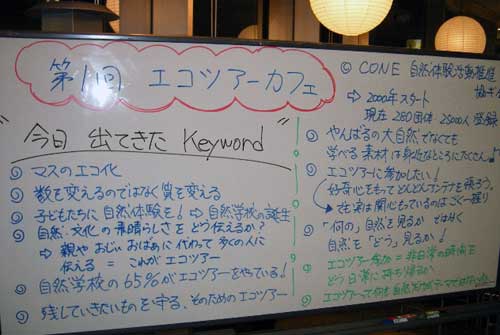 第1回 エコツアーカフェ
"今日 出てきた Keyword"
◎ マスのエコ化
◎ 数を変えるのではなく質を変える
◎ 子どもたちに自然体験を! ⇨ 自然学校の誕生
◎ 自然・文化の素晴らしさをどう伝えるか?
⇨ 親や おじい おばあに 代わって 多くの人に
伝える = これがエコツアー
◎ 自然学校の65%がエコツアーをやっている!
◎ 残していきたいものを守る、そのためのエコツアー
◎ CONE 自然体験活動推進
協ぎ
⇨ 2000年スタート
現在 280団体 25000人 登録
◎ やんばるの大自然でなくても
学べる素材は身近なところにたくさん!
◎ エコツアーに参加したい!
好奇心もってどんどんアンテナを張ろう。
でも実は関心もっているのはごく一握り
◎ 「何の」自然を見るか ではなく
自然を「どう」見るか!
◎ エコツアー参加 = 非日常の時間を
どう日常に持ち帰るか
◎ エコツアーって何も自然だけがテーマではない